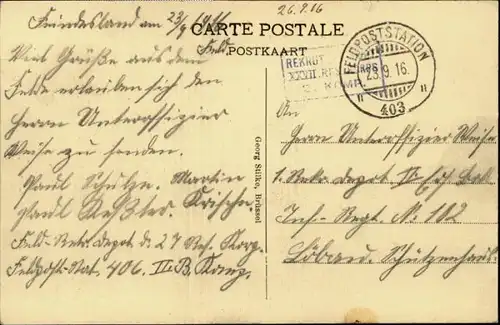 26.9.16
CARTE POSTALE
POSTKAART
Feindesland am 23/9 1916
Viel Grüße aus dem Feld
Felde erlauben sich den
Herrn Unteroffizier
Weise zu senden.
Paul Schulze. Martin
Paul Krische.
Feld-Rekr. Depot d. 27 Res. Korp.
Feldpost-Stat. 406. II. B. Komp.
Georg Stilke, Brüssel
REKRUT
XXVII. RES
FELDPOSTSTATION
23.9.16.
403
An
Herrn Unteroffizier Weise
1. Rekr. Depot
Inf.-Regt. No: 102
Löbau. Schützenhaus.